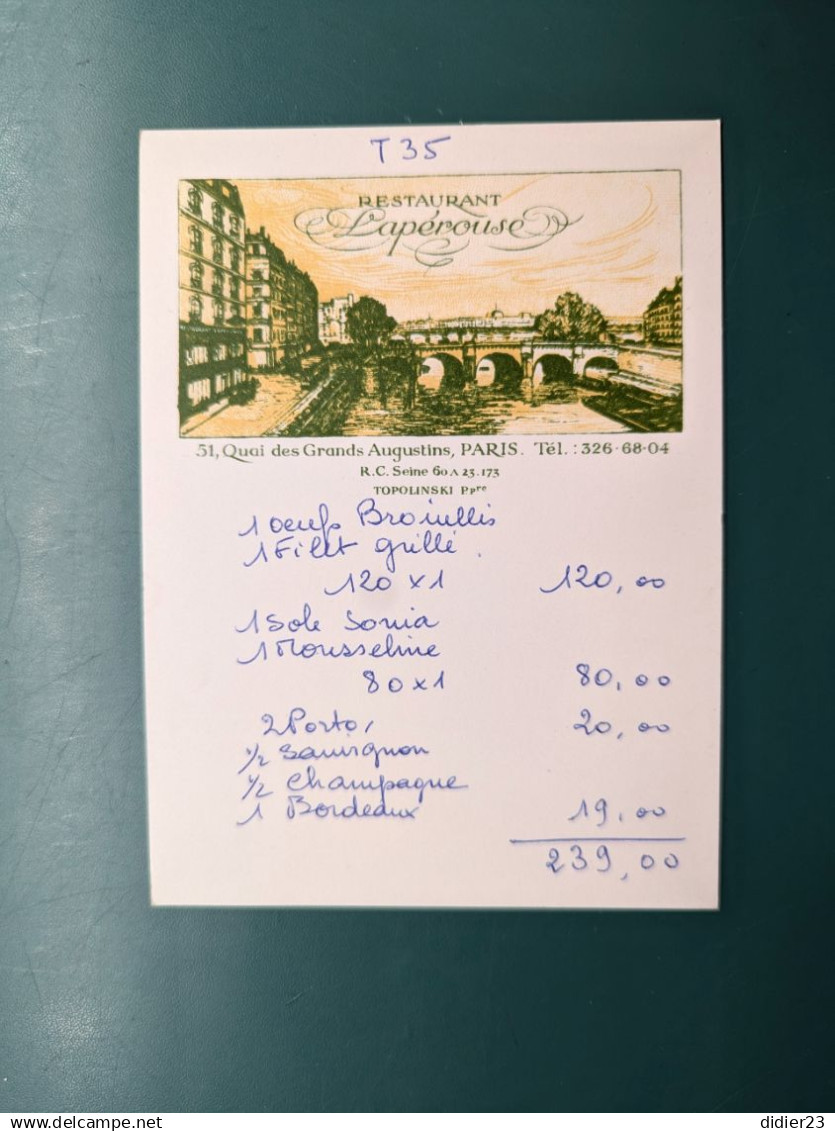 T 35
RESTAURANT
Lapérouse
51, Quai des Grands Augustins, PARIS. Tél.: 326-68-04
R.C. Seine 60 A 23.173
TOPOLINSKI Ppre
1 oeufs Brouillis
1 Filet grillé.
120 x 1 120,00
1 Sole Sonia
1 Mousseline
80 x 1 80,00
2 Porto, 20,00
1/2 Sauvignon
1/2 Champagne
1 Bordeaux 19,00
239,00
delcampe.net
didier23